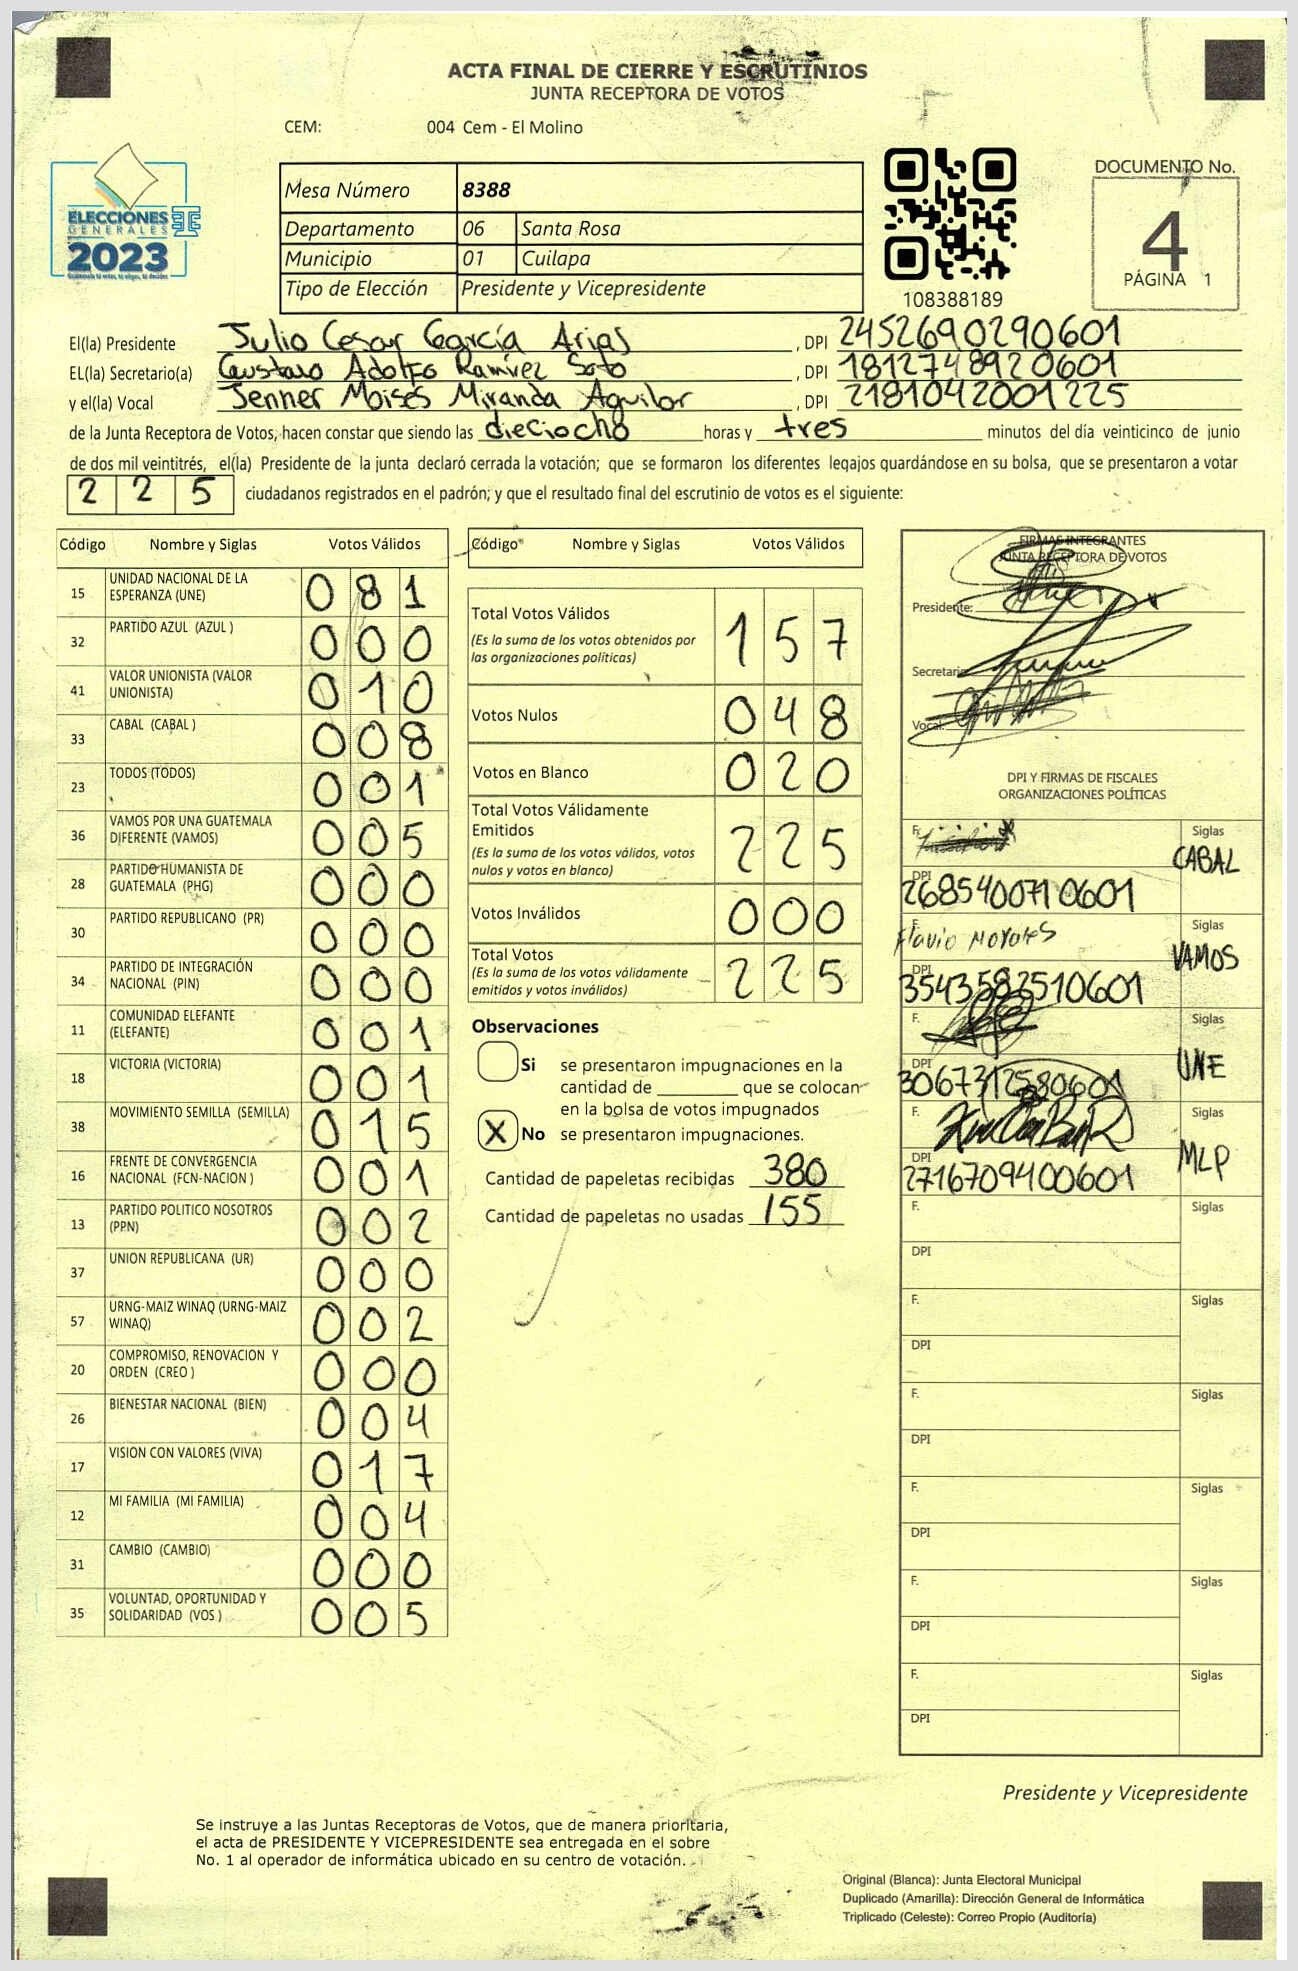 ACTA FINAL DE CIERRE Y ESCRUTINIOS
JUNTA RECEPTORA DE VOTOS
CEM: 004 Cem - El Molino
ELECCIONES
GENERALES
2023
Guatemala tú votas, tú eliges, tú decides
Mesa Número 8388
Departamento 06 Santa Rosa
Municipio 01 Cuilapa
Tipo de Elección Presidente y Vicepresidente
108388189
DOCUMENTO No.
4
PÁGINA 1
El(la) Presidente Julio Cesar García Arias , DPI 2452690290601
EL(la) Secretario(a) Gustavo Adolfo Ramírez Soto , DPI 1812748920601
y el(la) Vocal Jenner Moisés Miranda Aguilar , DPI 2181042001225
de la Junta Receptora de Votos, hacen constar que siendo las dieciocho horas y tres minutos del día veinticinco de junio
de dos mil veintitrés, el(la) Presidente de la junta declaró cerrada la votación; que se formaron los diferentes legajos guardándose en su bolsa, que se presentaron a votar
225 ciudadanos registrados en el padrón; y que el resultado final del escrutinio de votos es el siguiente:
Código Nombre y Siglas Votos Válidos
15 UNIDAD NACIONAL DE LA ESPERANZA (UNE) 081
32 PARTIDO AZUL (AZUL ) 000
41 VALOR UNIONISTA (VALOR UNIONISTA) 010
33 CABAL (CABAL ) 008
23 TODOS (TODOS) 001
36 VAMOS POR UNA GUATEMALA DIFERENTE (VAMOS) 005
28 PARTIDO HUMANISTA DE GUATEMALA (PHG) 000
30 PARTIDO REPUBLICANO (PR) 000
34 PARTIDO DE INTEGRACIÓN NACIONAL (PIN) 000
11 COMUNIDAD ELEFANTE (ELEFANTE) 001
18 VICTORIA (VICTORIA) 001
38 MOVIMIENTO SEMILLA (SEMILLA) 015
16 FRENTE DE CONVERGENCIA NACIONAL (FCN-NACION ) 001
13 PARTIDO POLITICO NOSOTROS (PPN) 002
37 UNION REPUBLICANA (UR) 000
57 URNG-MAIZ WINAQ (URNG-MAIZ WINAQ) 002
20 COMPROMISO, RENOVACION Y ORDEN (CREO ) 000
26 BIENESTAR NACIONAL (BIEN) 004
17 VISION CON VALORES (VIVA) 017
12 MI FAMILIA (MI FAMILIA) 004
31 CAMBIO (CAMBIO) 000
35 VOLUNTAD, OPORTUNIDAD Y SOLIDARIDAD (VOS ) 005
Código Nombre y Siglas Votos Válidos
Total Votos Válidos 157
(Es la suma de los votos obtenidos por
las organizaciones políticas)
Votos Nulos 048
Votos en Blanco 020
Total Votos Válidamente
Emitidos 225
(Es la suma de los votos válidos, votos
nulos y votos en blanco)
Votos Inválidos 000
Total Votos 225
(Es la suma de los votos válidamente
emitidos y votos inválidos)
Observaciones
Si se presentaron impugnaciones en la
cantidad de ________ que se colocan
en la bolsa de votos impugnados
X No se presentaron impugnaciones.
Cantidad de papeletas recibidas 380
Cantidad de papeletas no usadas 155
FIRMAS INTEGRANTES
JUNTA RECEPTORA DE VOTOS
Presidente:
Secretario:
Vocal:
DPI Y FIRMAS DE FISCALES
ORGANIZACIONES POLÍTICAS
F. Siglas CABAL
DPI 2685400710601
F. Flavio Morales Siglas VAMOS
DPI 3543582510601
F. Siglas UNE
DPI 3067312580601
F. Siglas MLP
DPI 2716709400601
F. Siglas
DPI
F. Siglas
DPI
F. Siglas
DPI
F. Siglas
DPI
F. Siglas
DPI
F. Siglas
DPI
Presidente y Vicepresidente
Se instruye a las Juntas Receptoras de Votos, que de manera prioritaria,
el acta de PRESIDENTE Y VICEPRESIDENTE sea entregada en el sobre
No. 1 al operador de informática ubicado en su centro de votación.
Original (Blanca): Junta Electoral Municipal
Duplicado (Amarilla): Dirección General de Informática
Triplicado (Celeste): Correo Propio (Auditoría)